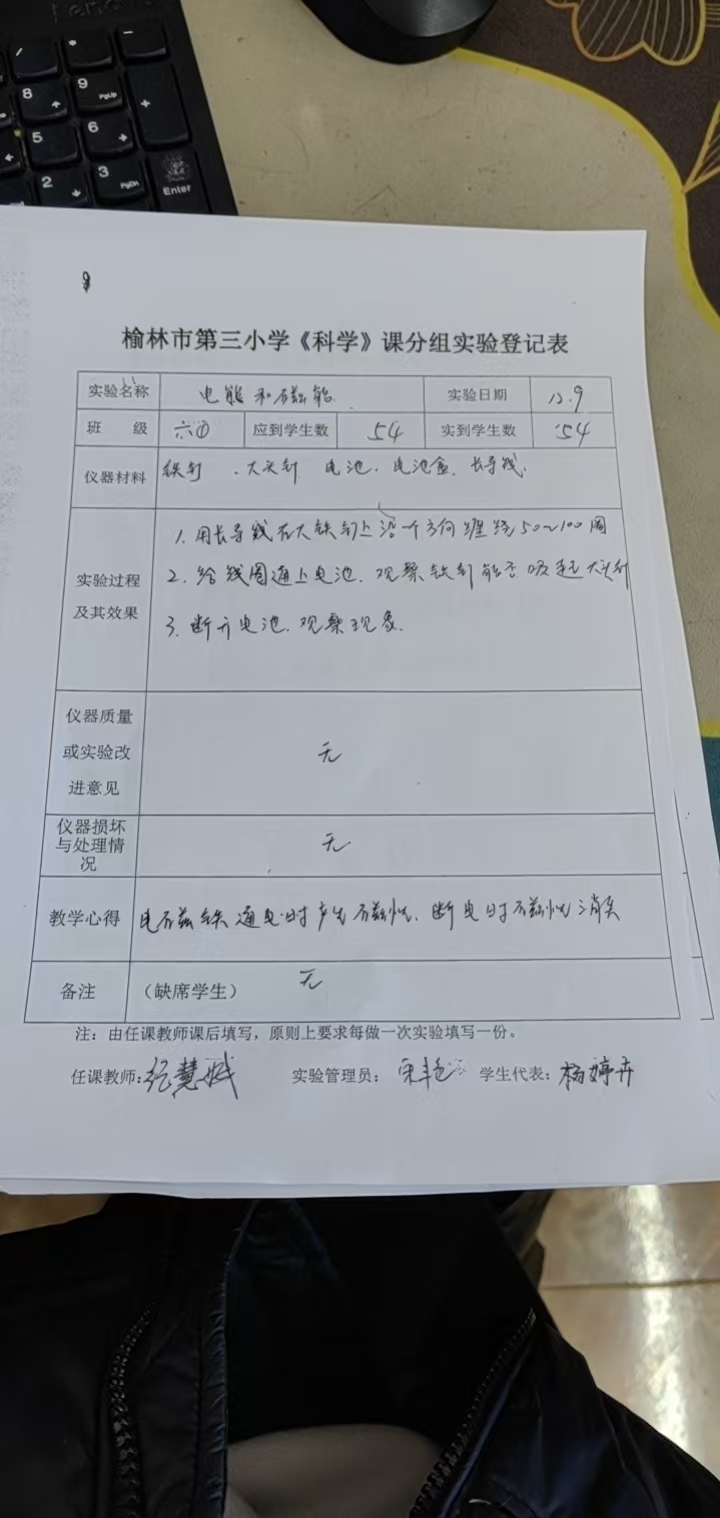 Lenovo
/
*
-
8
9
PgUp
+
5
6
2
3
PgDn
Enter
9
榆林市第三小学《科学》课分组实验登记表
实验名称 电能和磁能 实验日期 12.9
班 级 六① 应到学生数 54 实到学生数 54
仪器材料 铁钉、大头针、电池、电池盒、长导线.
实验过程及其效果
1. 用长导线在大铁钉上沿一个方向缠绕50~100周
2. 给线圈通上电池.观察铁钉能否吸起大头针
3. 断开电池.观察现象.
仪器质量或实验改进意见 无
仪器损坏与处理情况 无
教学心得 电磁铁通电时产生磁性.断电时磁性消失
备注 (缺席学生) 无
注:由任课教师课后填写,原则上要求每做一次实验填写一份。
任课教师: 实验管理员: 学生代表:杨婷卉